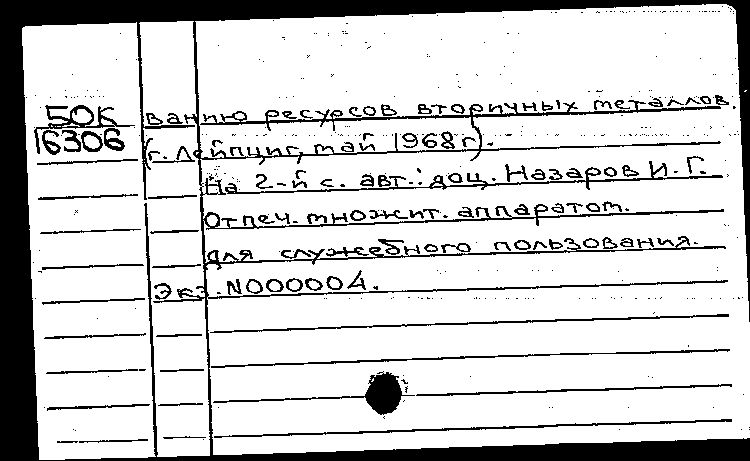 50К ванию ресурсов вторичных металлов.
16306 (г. Лейпциг, май 1968 г).
На 2-й с. авт.: доц. Назаров И. Г.
Отпеч. множит. аппаратом.
для служебного пользования.
Экз. N000004.